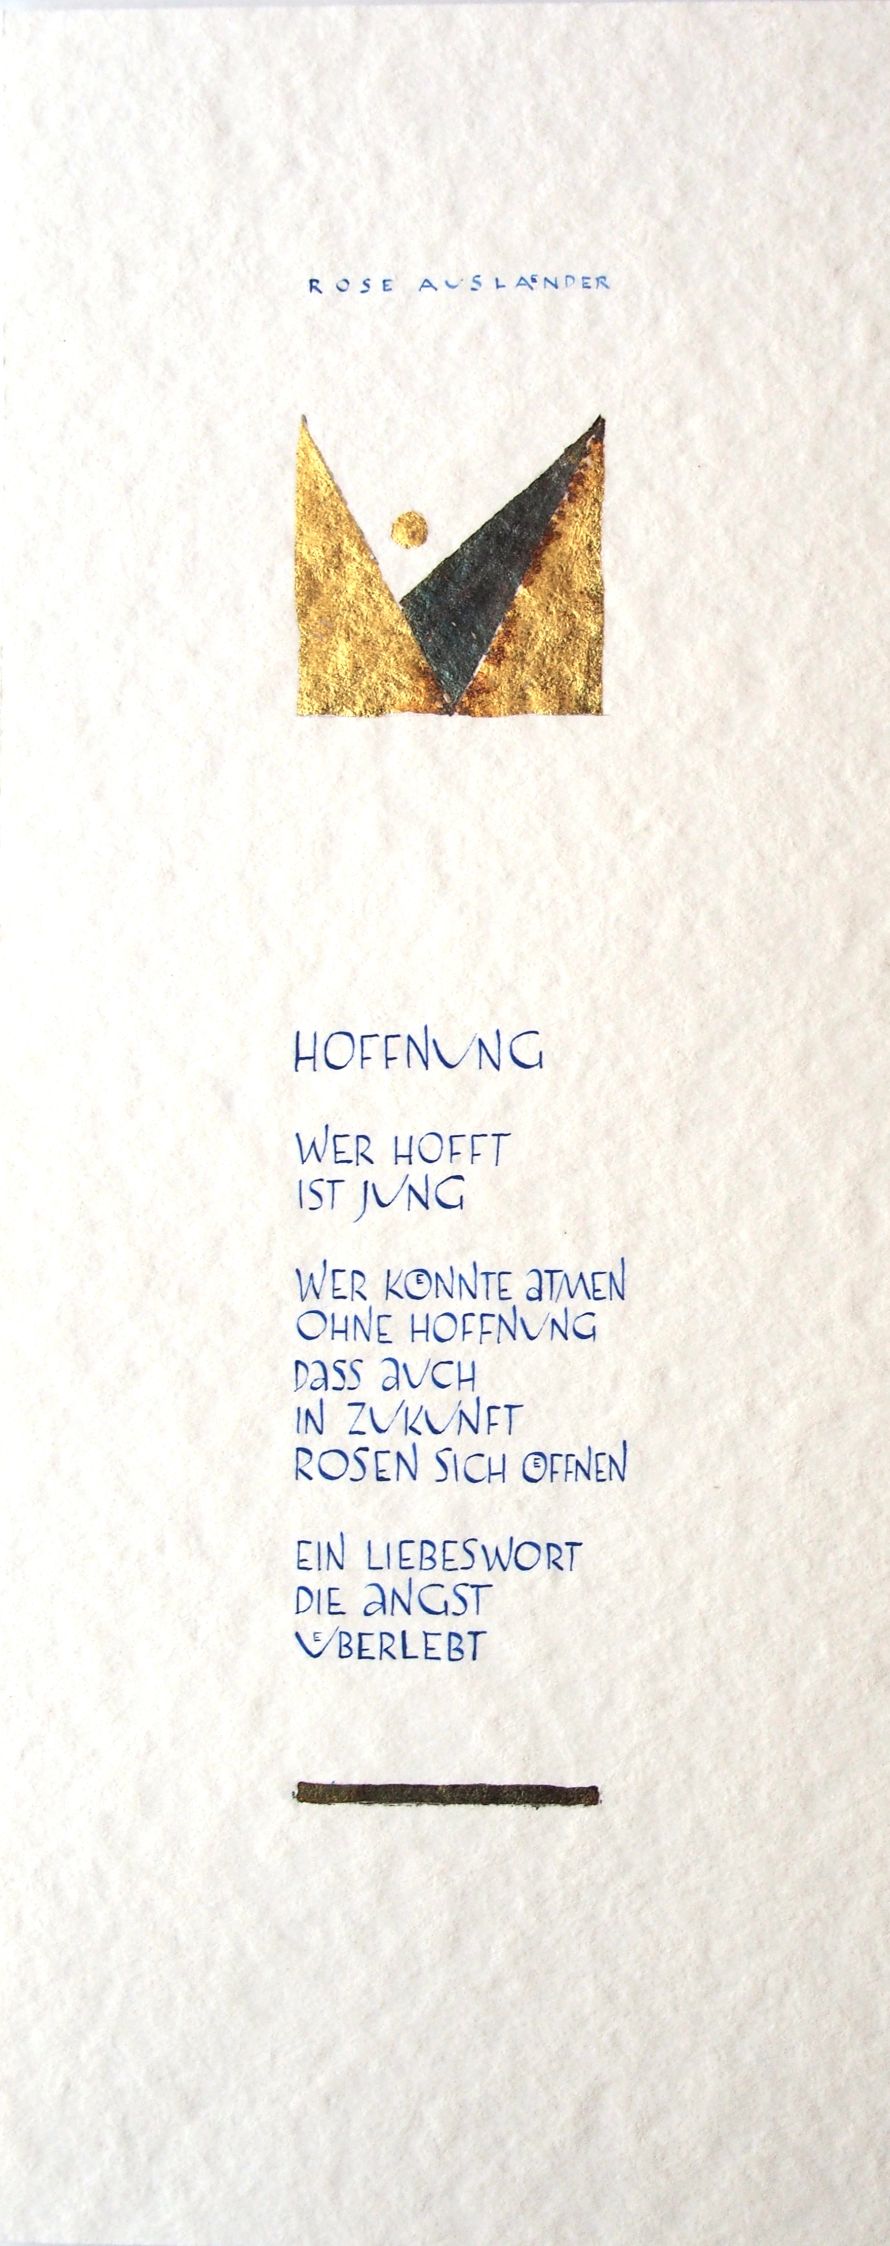 ROSE AUSLÄNDER
HOFFNUNG
WER HOFFT
IST JUNG
WER KÖNNTE ATMEN
OHNE HOFFNUNG
DASS AUCH
IN ZUKUNFT
ROSEN SICH ÖFFNEN
EIN LIEBESWORT
DIE ANGST
ÜBERLEBT